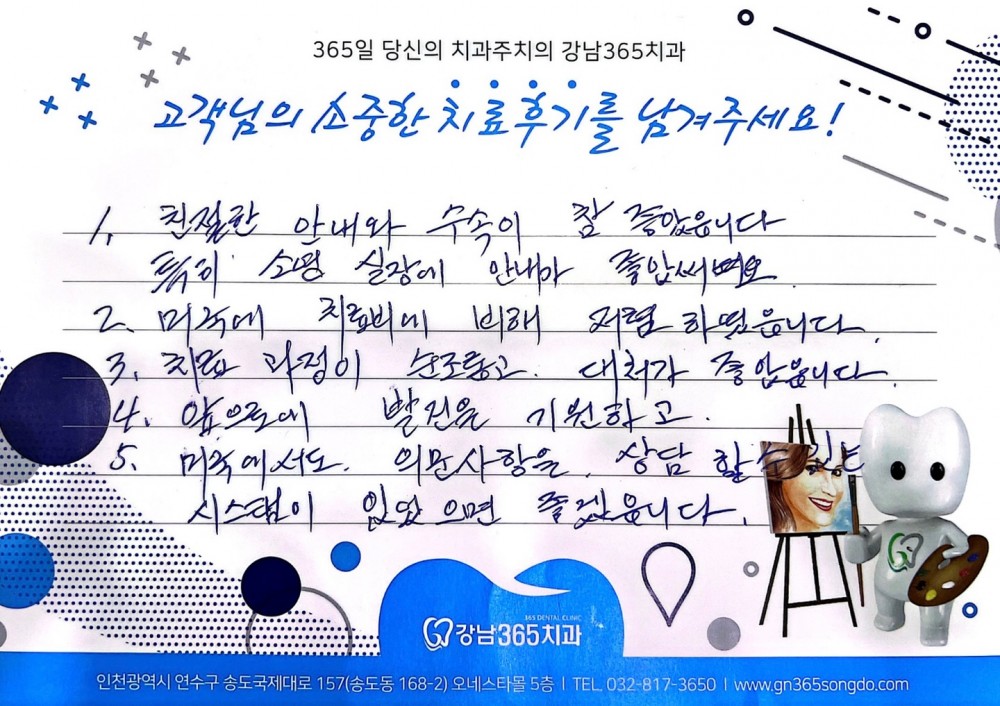 365일 당신의 치과주치의 강남365치과
고객님의 소중한 치료후기를 남겨주세요!
1. 친절한 안내와 수속이 참 좋았읍니다
특히 소평 실장에 안내가 좋았
2. 미국에 치료비에 비해 저렴 하였읍니다.
3. 치료 과정이 순조롭고. 대처가 좋았읍니다.
4. 앞으로에 발전을 기원하고.
5. 미국에서도. 의문사항을. 상담 할수 있는
시스템이 있었으면 좋겠읍니다.
365 DENTAL CLINIC
강남365치과
인천광역시 연수구 송도국제대로 157(송도동 168-2) 오네스타몰 5층 | TEL. 032-817-3650 | www.gn365songdo.com